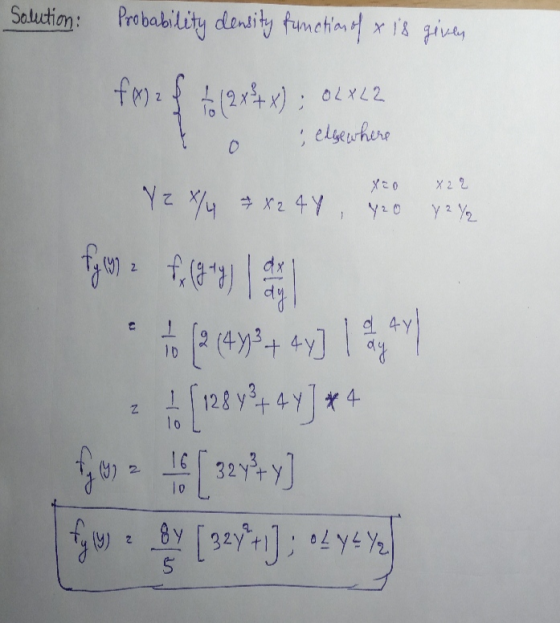 Solution: Probability density function of x is given
f(x) = { 1/10 (2x³+x) ; 0<x<2
0 ; elsewhere
Y = x/4 ⇒ x = 4Y , x=0 x=2
Y=0 Y=1/2
fy(y) = fx(g⁻¹y) |dx/dy|
= 1/10 [2(4Y)³ + 4Y] |d/dy 4Y|
= 1/10 [128Y³ + 4Y] * 4
fy(y) = 16/10 [32Y³+Y]
fy(y) = 8Y/5 [32Y²+1] ; 0≤Y≤1/2